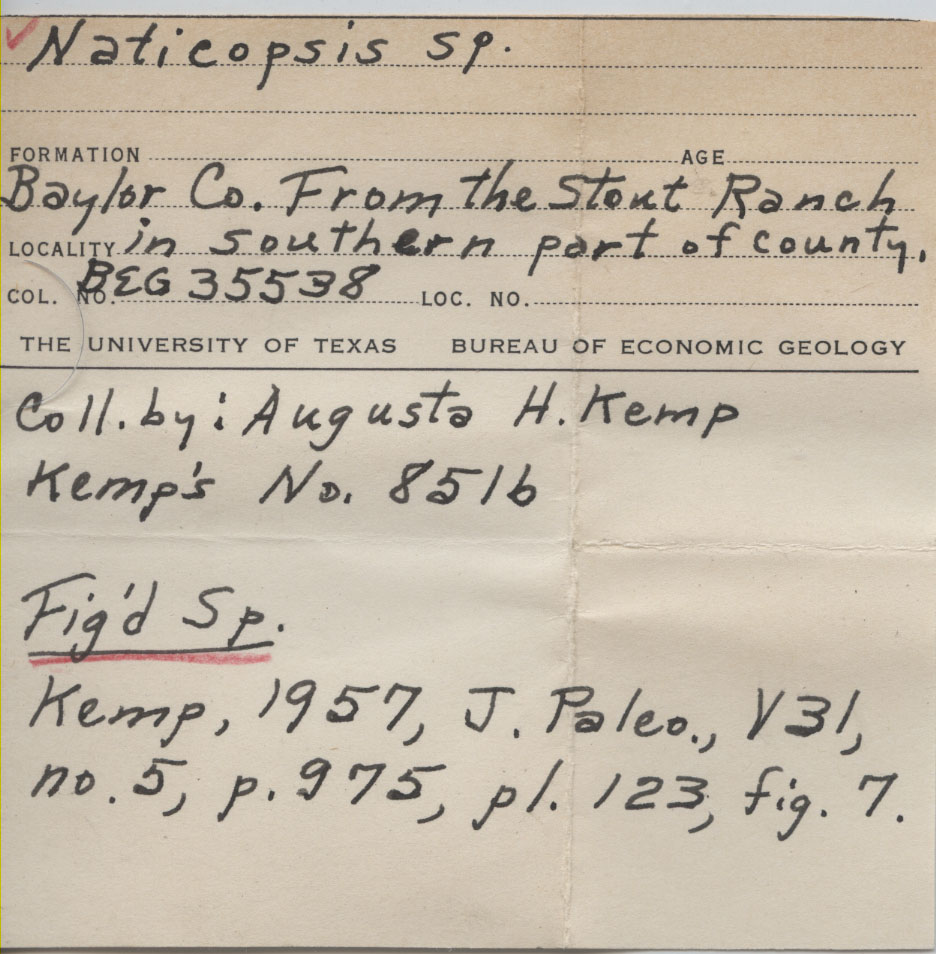 ✓ Naticopsis sp.
FORMATION AGE
Baylor Co. From the Stout Ranch
LOCALITY in southern part of county.
COL. NO. BEG 35538 LOC. NO.
THE UNIVERSITY OF TEXAS BUREAU OF ECONOMIC GEOLOGY
Coll. by: Augusta H. Kemp
Kemp's No. 851b
Fig'd Sp.
Kemp, 1957, J. Paleo., V31,
no. 5, p. 975, pl. 123, fig. 7.